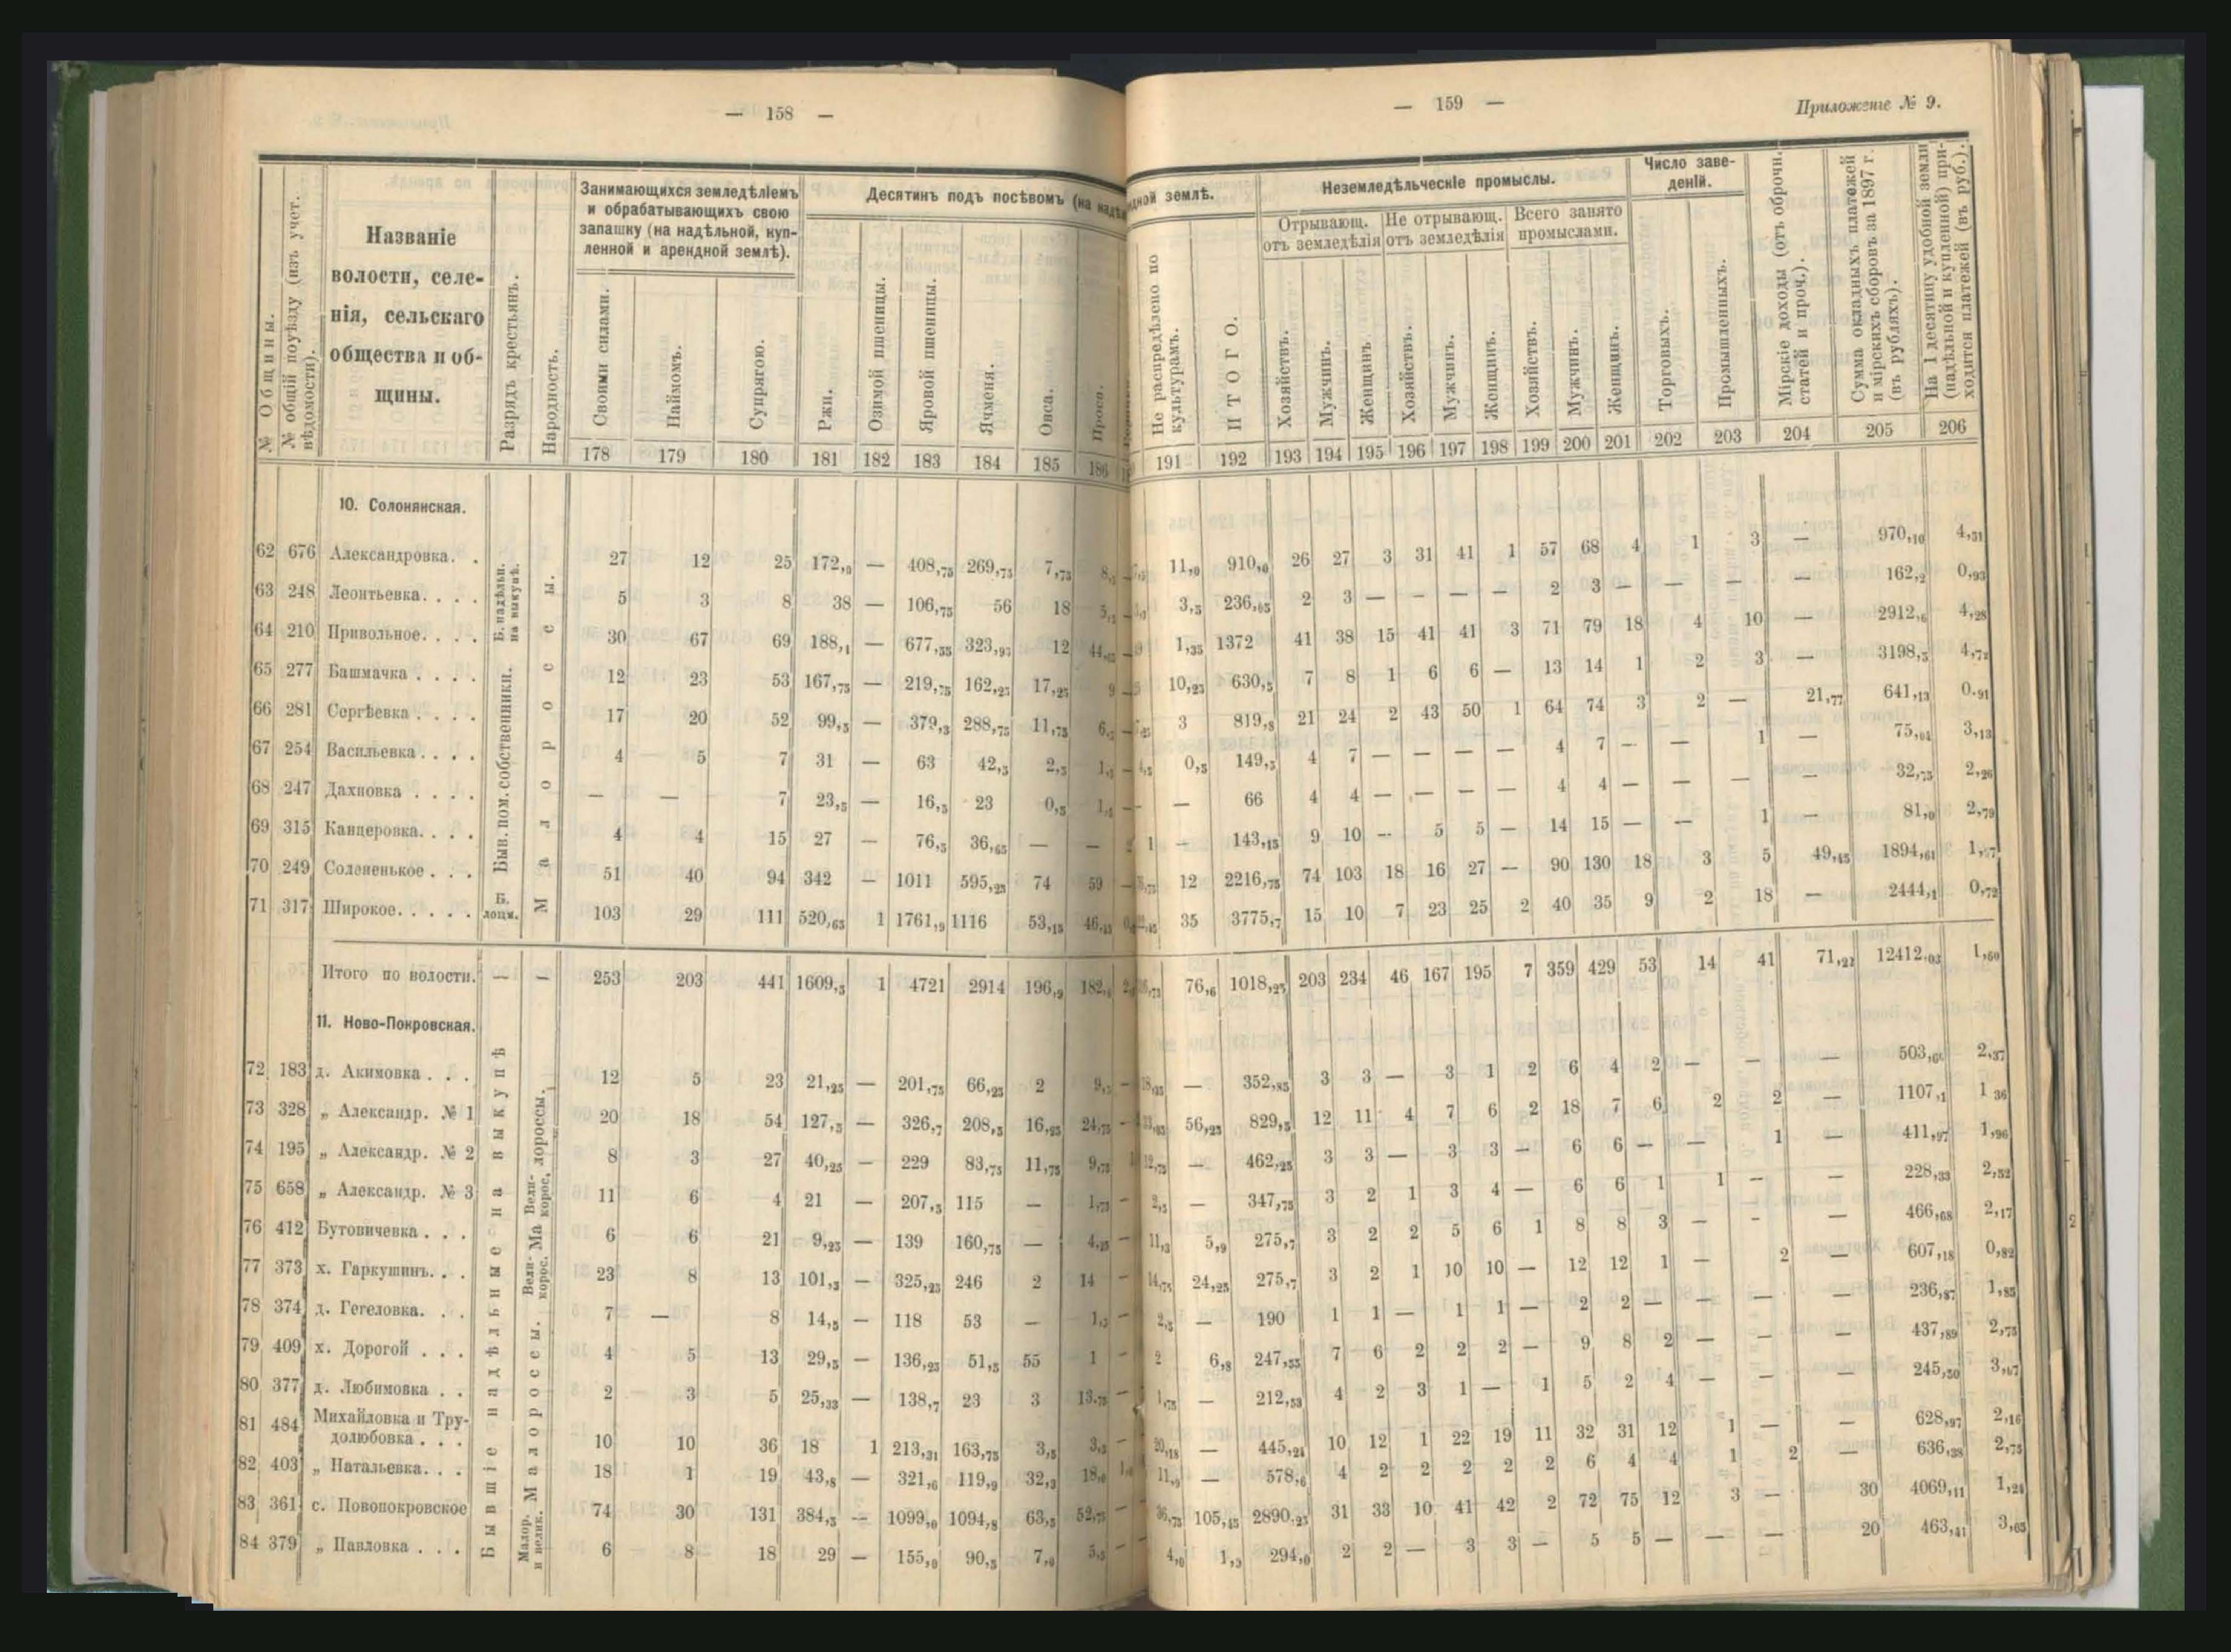 — 158 —
№ Общины.
№ общій поуѣзду (изъ учет. вѣдомости).
Названіе
волости, селе-
нія, сельскаго
общества и об-
щины.
Разрядъ крестьянъ.
Народность.
Занимающихся земледѣліемъ
и обрабатывающихъ свою
запашку (на надѣльной, куп-
ленной и арендной землѣ).
Десятинъ подъ посѣвомъ (на надѣ
Своими силами.
Наймомъ.
Супрягою.
Ржи.
Озимой пшеницы.
Яровой пшеницы.
Ячменя.
Овса.
Проса.
178 179 180 181 182 183 184 185 186
10. Солонянская.
62 676 Александровка. . 27 12 25 172,0 — 408,75 269,75 7,75
63 248 Леонтьевка. . . . 5 3 8 38 — 106,75 56 18
64 210 Привольное. . . . 30 67 69 188,1 — 677,55 323,95 12
65 277 Башмачка . . . . 12 23 53 167,75 — 219,75 162,25 17,25 9
66 281 Сергѣевка . . . . 17 20 52 99,5 — 379,3 288,75 11,75
67 254 Васильевка . . . . 4 5 7 31 — 63 42,5 2,5
68 247 Дахновка . . . . — — 7 23,5 — 16,5 23 0,5
69 315 Канцеровка. . . . 4 4 15 27 — 76,5 36,65 — —
70 249 Солененькое . . . 51 40 94 342 — 1011 595,25 74 59
71 317 Широкое. . . . . 103 29 111 520,65 1 1761,9 1116 53,15
Б. надѣльн. на выкупѣ.
Быв. пом. собственники.
Б. лоцм.
Малороссы.
Итого по волости. — — 253 203 441 1609,5 1 4721 2914 196,9
11. Ново-Покровская.
72 183 д. Акимовка . . . 12 5 23 21,25 — 201,75 66,25 2
73 328 „ Александр. № 1 20 18 54 127,5 — 326,7 208,5 16,25 24,75
74 195 „ Александр. № 2 8 3 27 40,25 — 229 83,75 11,75 9,75
75 658 „ Александр. № 3 11 6 4 21 — 207,5 115 — 1,75
76 412 Бутовичевка . . . 6 6 21 9,25 — 139 160,75 — 4,25
77 373 х. Гаркушинъ. . . 23 8 13 101,3 — 325,25 246 2 14
78 374 д. Гегеловка. . . 7 — 8 14,5 — 118 53 —
79 409 х. Дорогой . . . 4 5 13 29,5 — 136,25 51,5 55 1
80 377 д. Любимовка . . 2 3 5 25,33 — 138,7 23 3 13,75
81 484 Михайловка и Тру-
долюбовка . . . 10 10 36 18 1 213,31 163,75 3,5
82 403 „ Натальевка. . . 18 1 19 43,8 — 321,6 119,9 32,3
83 361 с. Новопокровское 74 30 131 384,5 — 1099,0 1094,8 63,5 52,75
84 379 „ Павловка . . . 6 8 18 29 — 155,0 90,5 7,0
Бывшіе надѣльные на выкупѣ
Вели- корос, лороссы.
Вели- корос. Ма
Малороссы.
Малор. и велик.
— 159 —
Приложеніе № 9.
ндной землѣ.
Неземледѣльческіе промыслы.
Число заве-
деній.
Отрывающ.
отъ земледѣлія
Не отрывающ.
отъ земледѣлія
Всего занято
промыслами.
Не распредѣлено по культурамъ.
ИТОГО.
Хозяйствъ.
Мужчинъ.
Женщинъ.
Хозяйствъ.
Мужчинъ.
Женщинъ.
Хозяйствъ.
Мужчинъ.
Женщинъ.
Торговыхъ.
Промышленныхъ.
Мірскіе доходы (отъ оброчн. статей и проч.).
Сумма окладныхъ платежей и мірскихъ сборовъ за 1897 г. (въ рубляхъ).
На 1 десятину удобной земли (надѣльной и купленной) при- ходится платежей (въ руб.).
191 192 193 194 195 196 197 198 199 200 201 202 203 204 205 206
11,0 910,0 26 27 3 31 41 1 57 68 4 1 3 — 970,10 4,31
3,5 236,05 2 3 — — — — 2 3 — — — — 162,2 0,93
1,35 1372 41 38 15 41 41 3 71 79 18 4 10 — 2912,6 4,28
10,25 630,5 7 8 1 6 6 — 13 14 1 2 3 — 3198,5 4,72
3 819,8 21 24 2 43 50 1 64 74 3 2 — 21,77 641,13 0,91
0,5 149,5 4 7 — — — — 4 7 — — 1 — 75,04 3,13
— 66 4 4 — — — — 4 4 — — — — 32,75 2,26
1 — 143,15 9 10 — 5 5 — 14 15 — — 1 — 81,0 2,79
12 2216,75 74 103 18 16 27 — 90 130 18 3 5 49,45 1894,61
35 3775,7 15 10 7 23 25 2 40 35 9 2 18 — 2444,1 0,72
76,6 1018,25 203 234 46 167 195 7 359 429 53 14 41 71,22 12412,03 1,60
— 352,85 3 3 — 3 1 2 6 4 2 — — — 2,37
56,25 829,5 12 11 4 7 6 2 18 7 6 2 2 — 1107,1 1 36
12,75 — 462,25 3 3 — 3 3 — 6 6 — — 1 — 411,97 1,96
2,5 — 347,75 3 2 1 3 4 — 6 6 1 1 — — 228,33 2,52
11,3 5,9 275,7 3 2 2 5 6 1 8 8 3 — - — 466,68 2,17
14,75 24,25 275,7 3 2 1 10 10 — 12 12 1 — 2 — 607,18 0,82
2,5 — 190 1 1 — 1 1 — 2 2 — — — — 236,87 1,85
2 6,8 247,55 7 6 2 2 2 — 9 8 2 — — — 437,89 2,75
1,75 — 212,53 4 2 3 1 — 1 5 2 4 — — — 245,50 3,67
20,18 — 445,24 10 12 1 22 19 11 32 31 12 1 — — 628,97 2,16
11,9 — 578,6 4 2 2 2 2 2 6 4 4 1 2 — 636,38 2,75
36,75 105,45 2890,25 31 33 10 41 42 2 72 75 12 3 — 30 4069,11 1,24
4,0 294,0 2 2 — 3 3 — 5 5 — — — 20 463,41 3,65